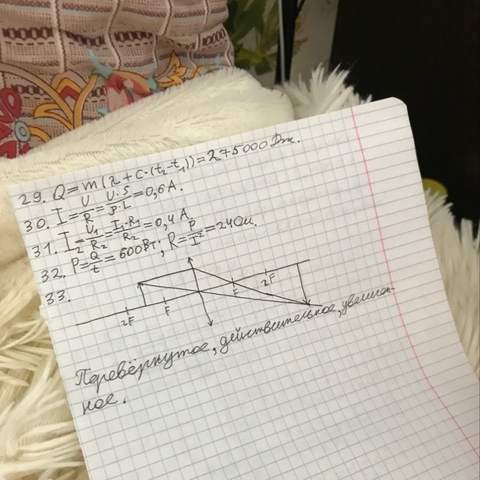 29. Q = m(λ + c·(t₂-t₁)) = 275000 Дж.
30. I = U/R = U·S/ρ·L = 0,6 А.
31. I₂ = U₁/R₂ = I₁·R₁/R₂ = 0,4 А.
32. P = Q/t = 600 Вт; R = P/I² = 24 Ом.
33.
2F F F 2F
Перевёрнутое, действительное, увелич-
ное.